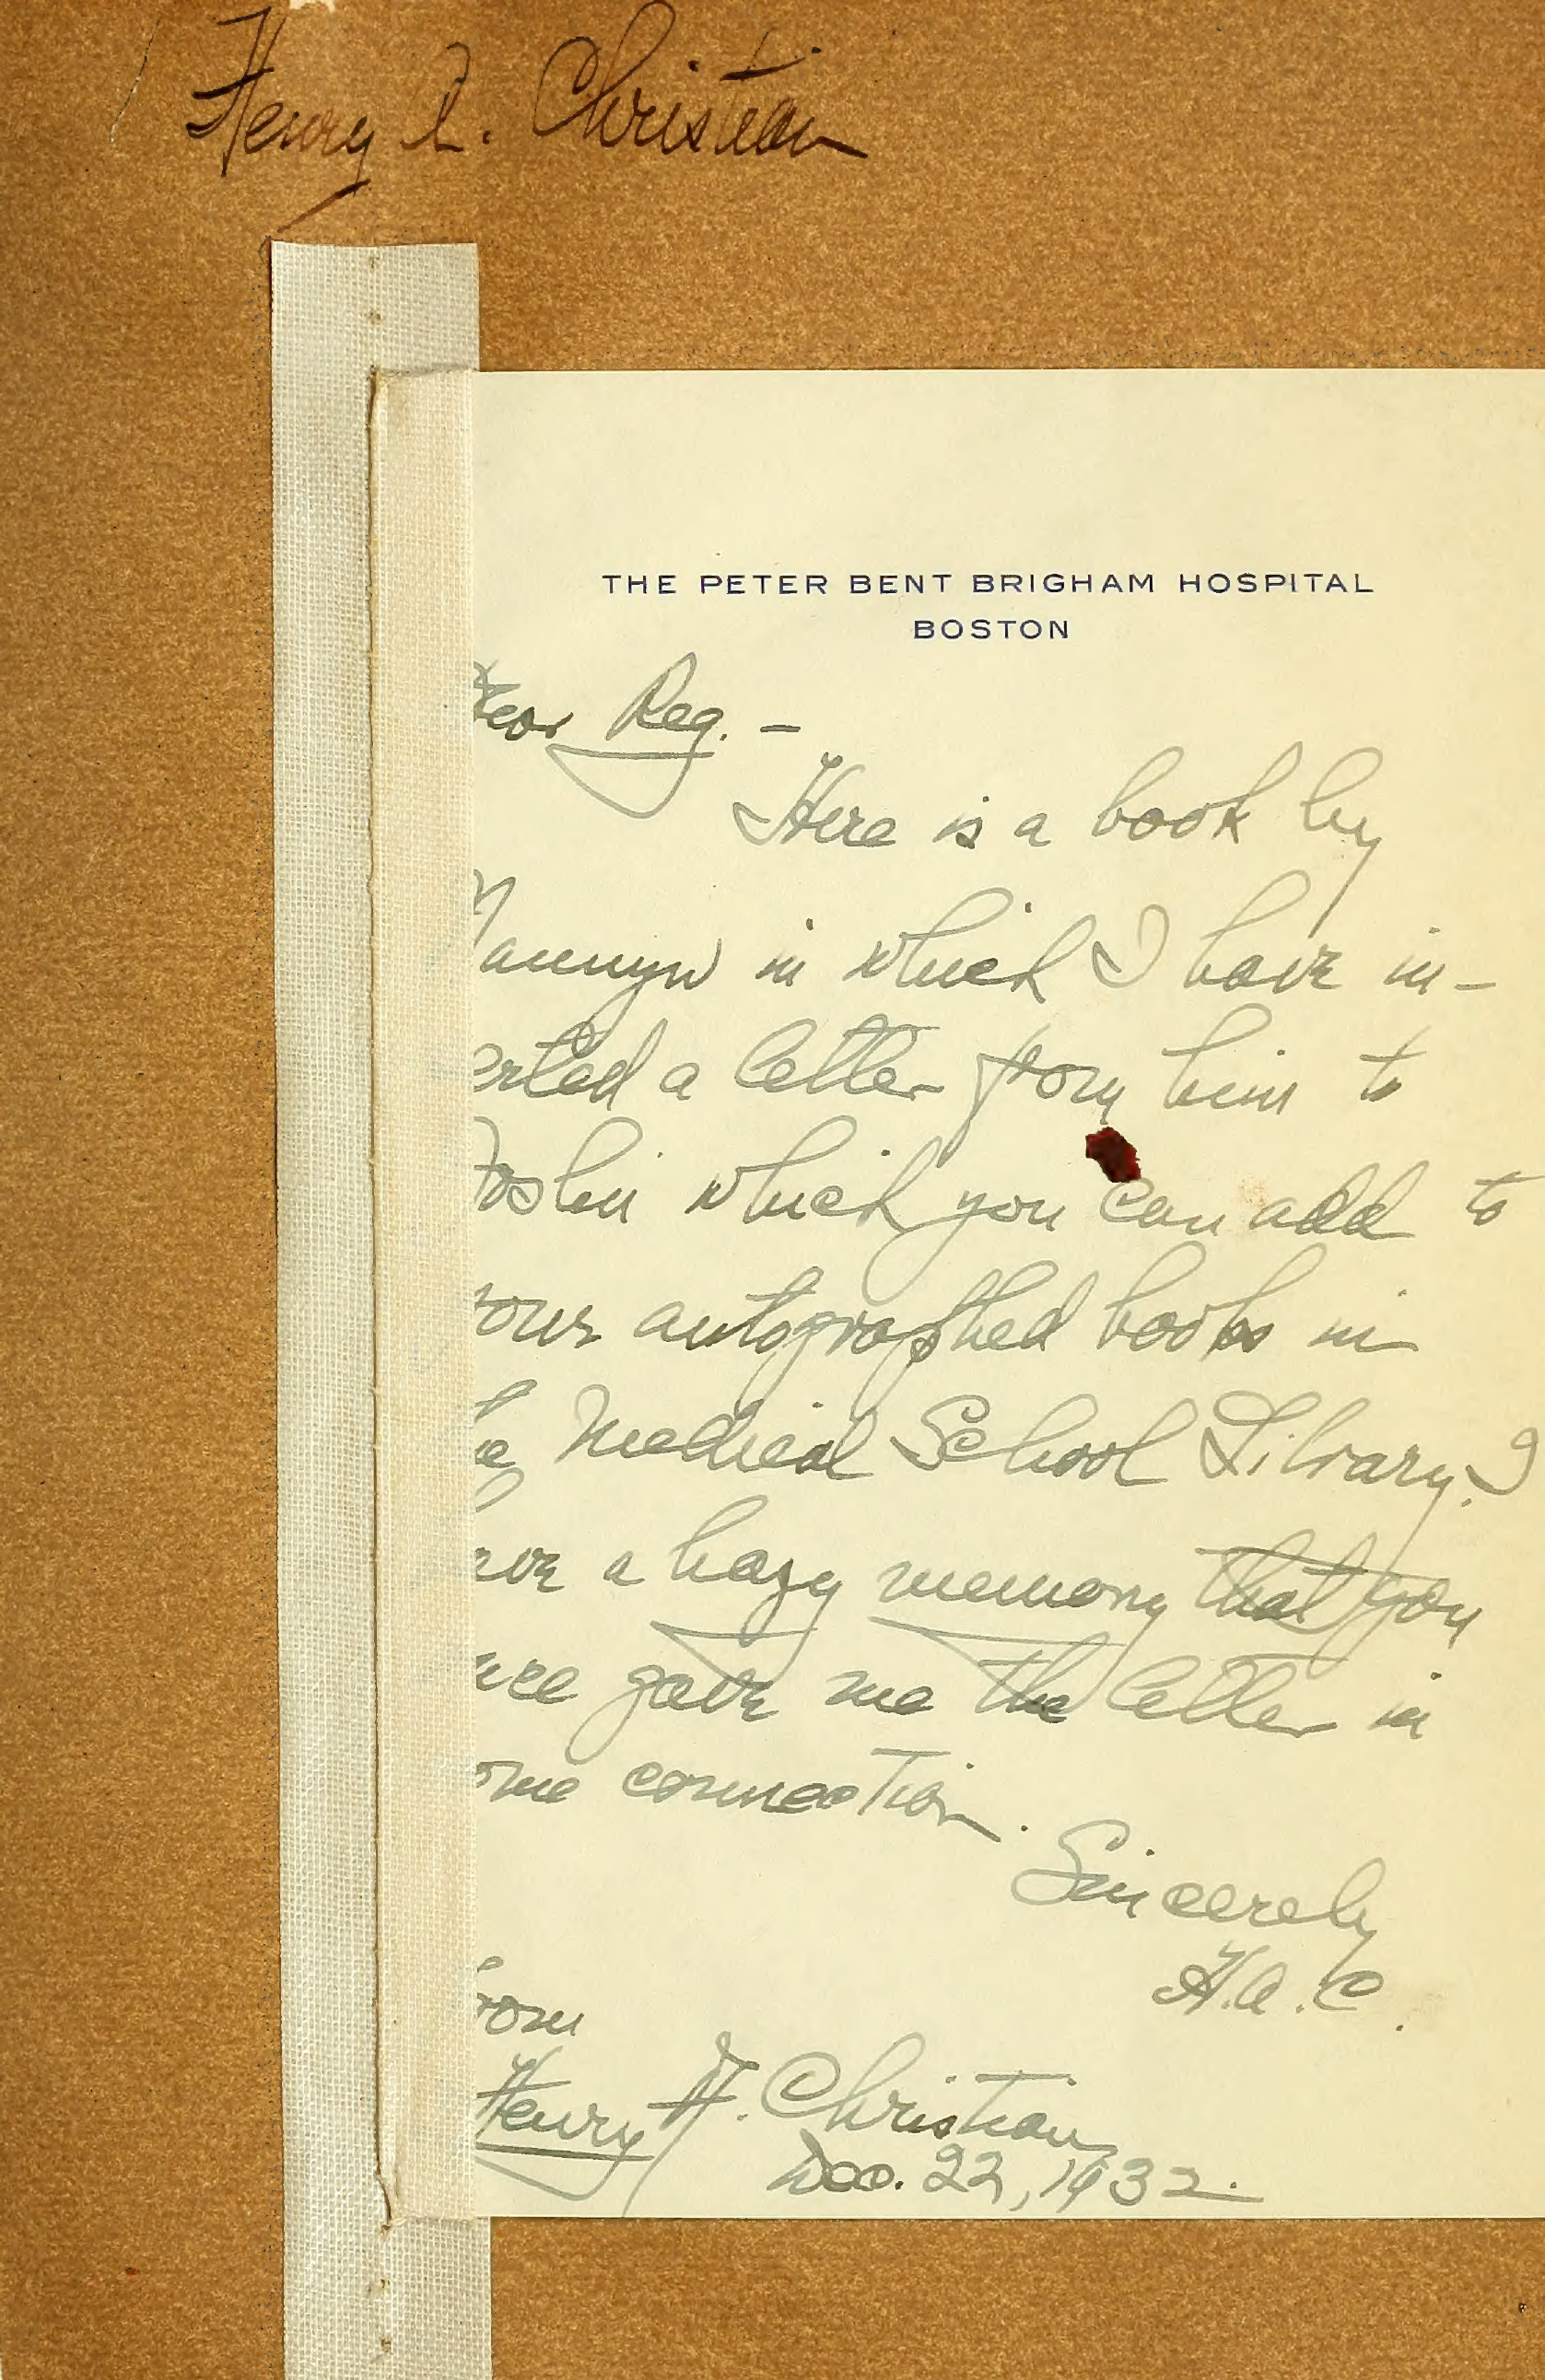 Henry A. Christian
THE PETER BENT BRIGHAM HOSPITAL
BOSTON
Dear Reg. –
Here is a book by
Naunyn in which I have in-
erted a letter from him to
Joslin which you can add to
your autographed books in
he Medical School Library. I
ave a hazy memory that you
nce gave me the letter in
ome connection.
Sincerely
H.A.C.
rom
Henry A. Christian
Dec. 22, 1932.